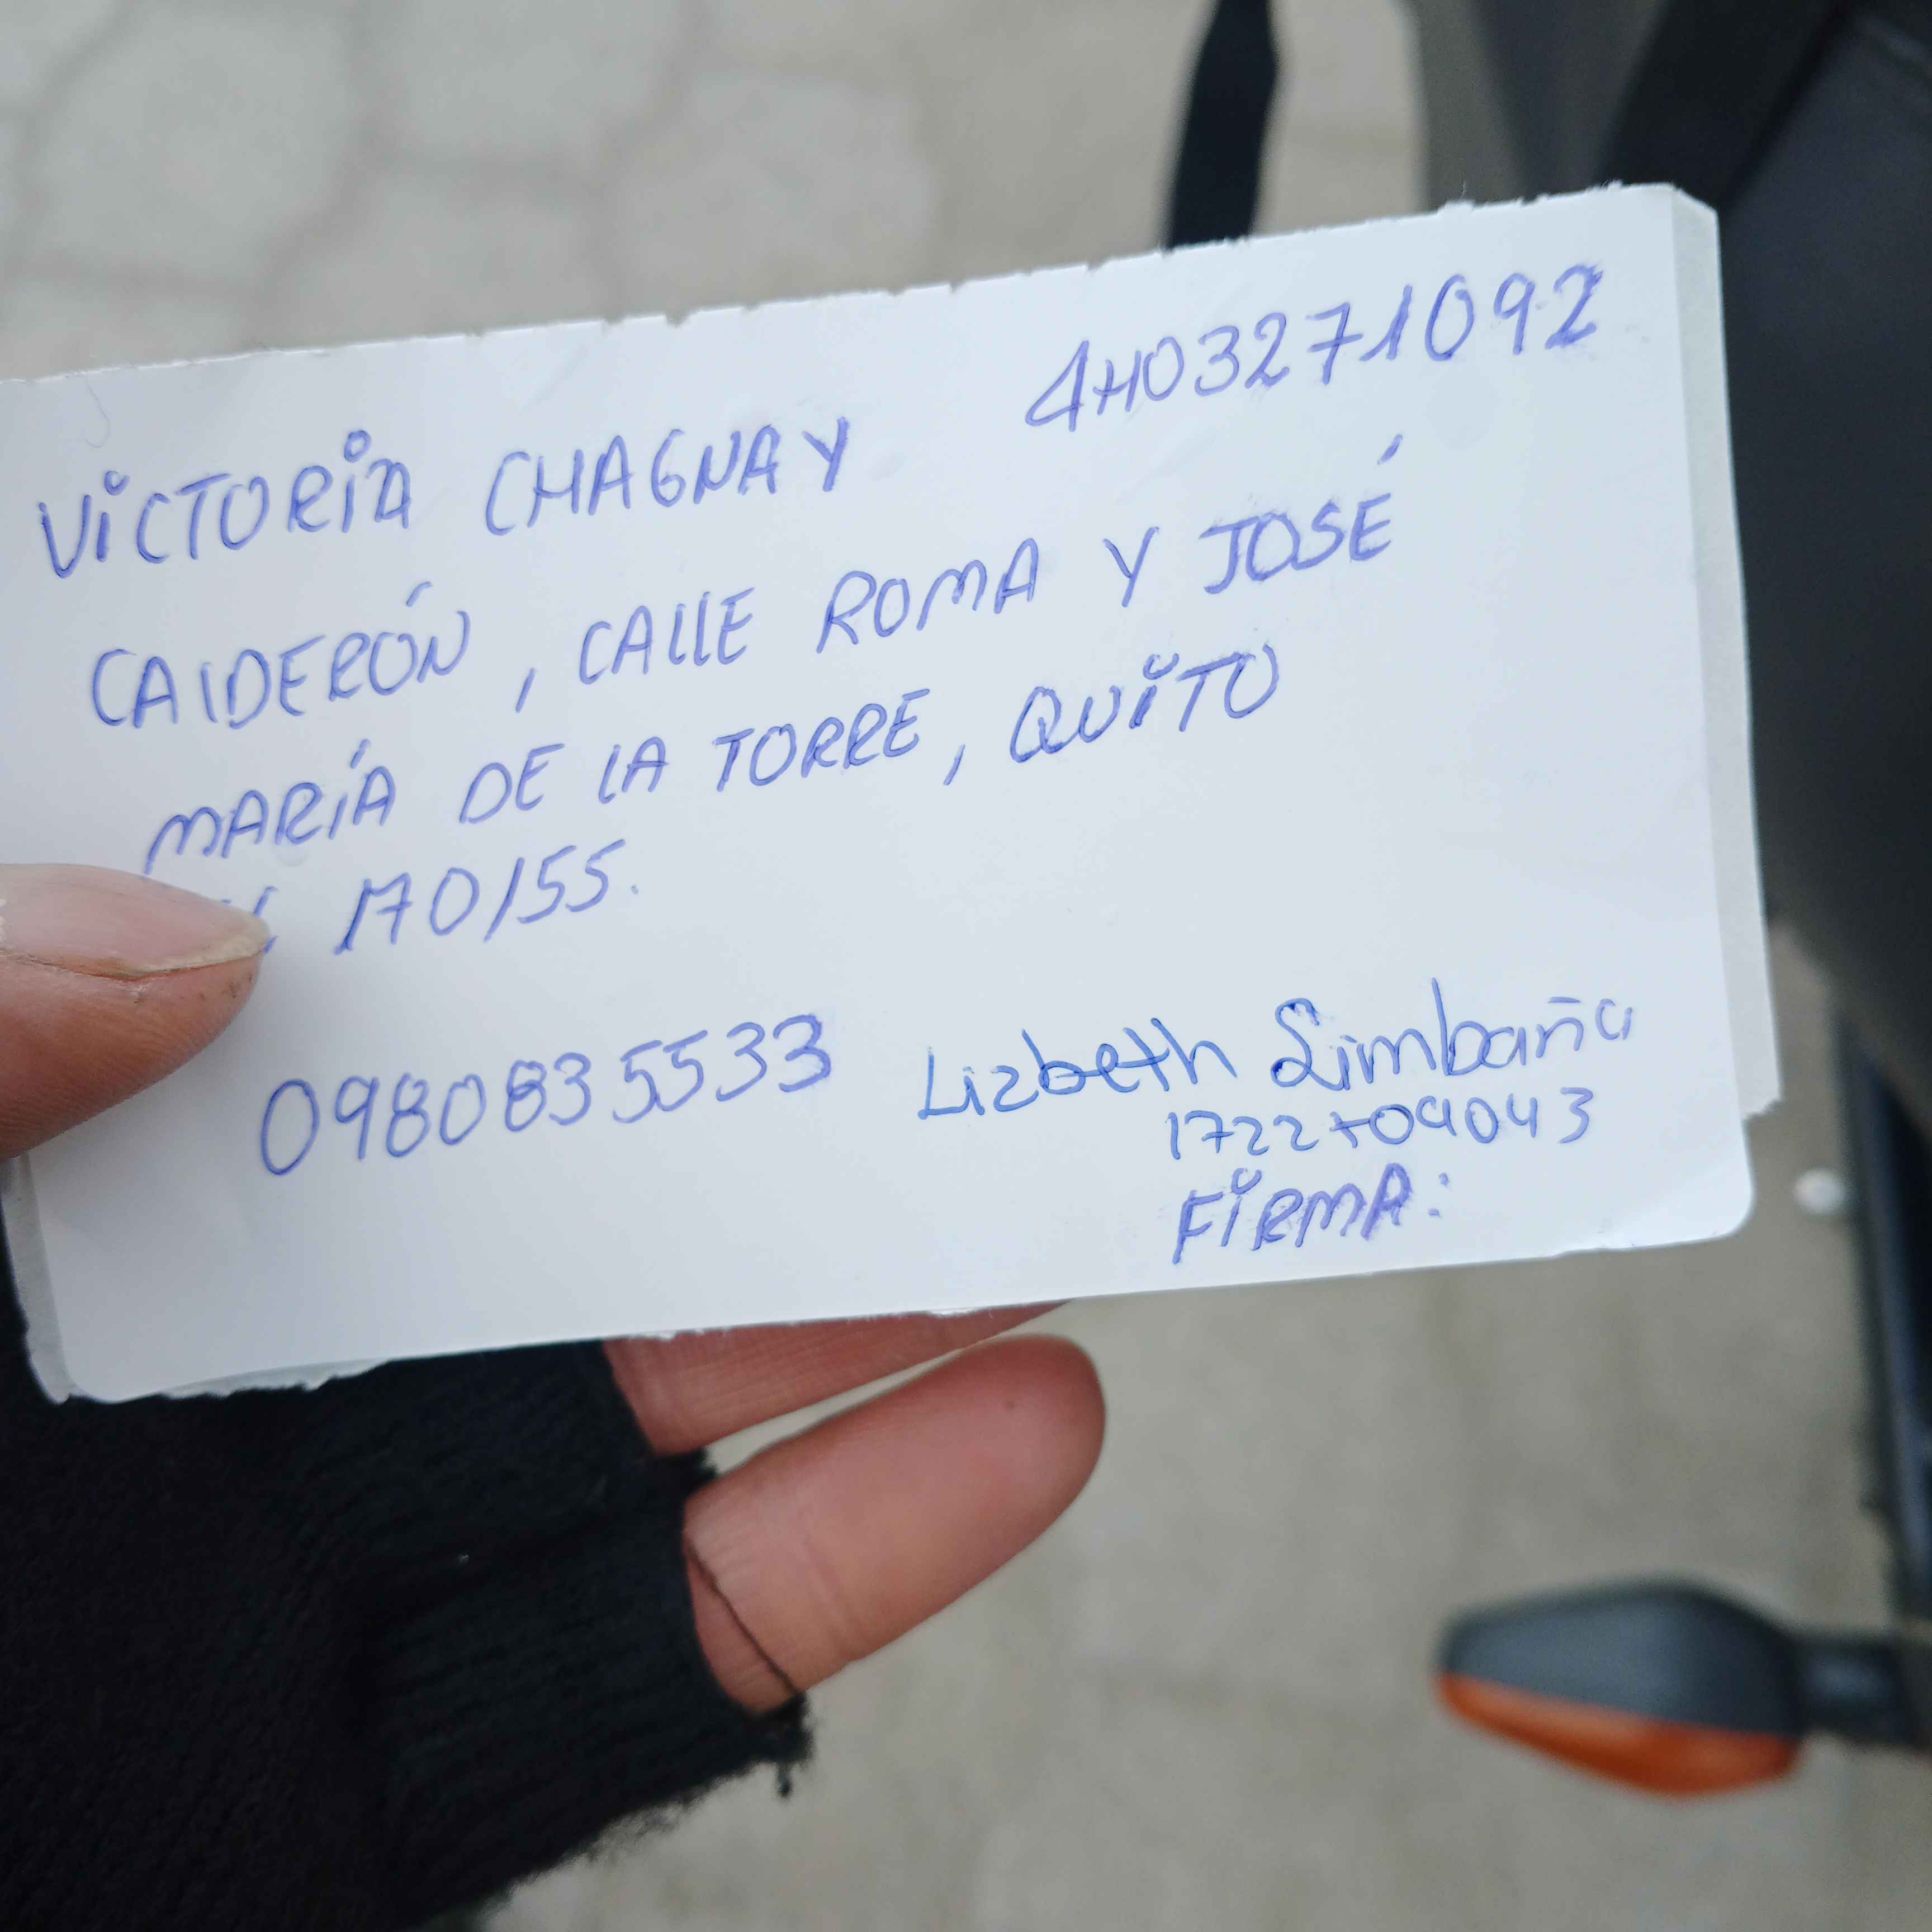 VICTORIA CHAGNAY 4H03271092
CALDERÓN, CALLE ROMA Y JOSÉ
MARÍA DE LA TORRE, QUITO
170155.
0980835533 Lizbeth Simbaña
1722709043
FIRMA: